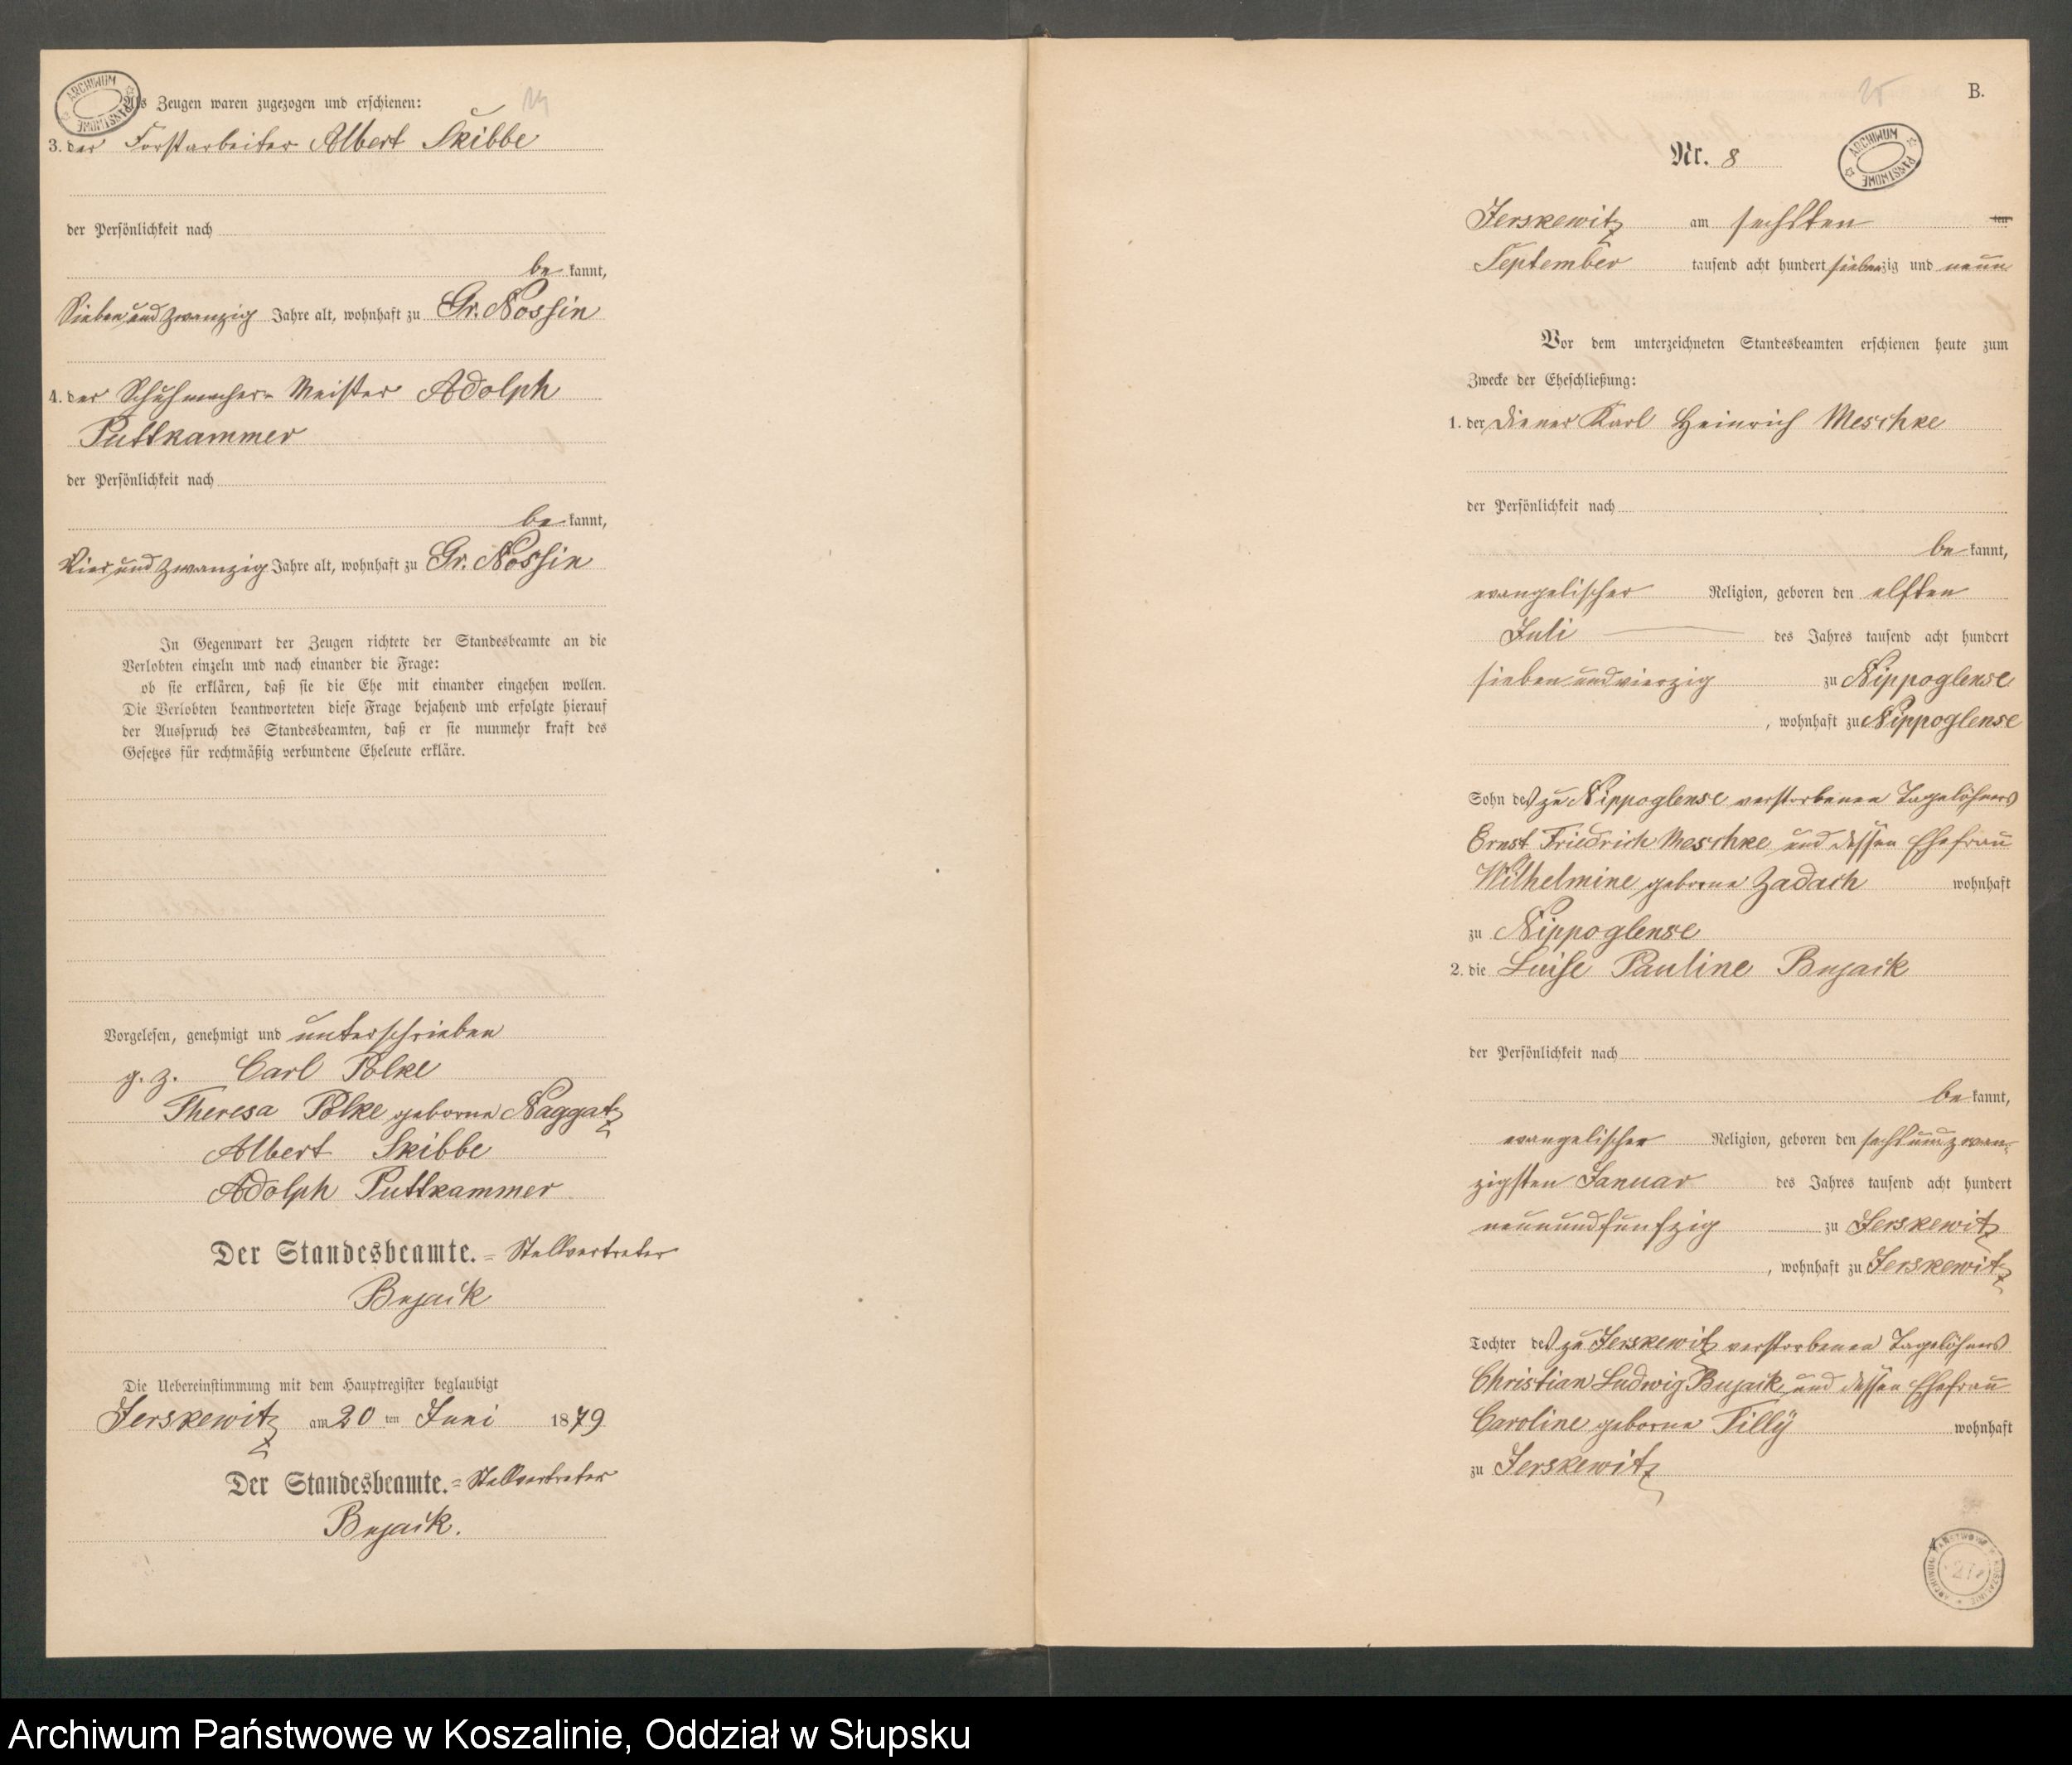 Als Zeugen waren zugezogen und erschienen:
3. der Forstarbeiter Albert Skibbe
der Persönlichkeit nach
be kannt,
Sieben und zwanzig Jahre alt, wohnhaft zu Gr. Nossin
4. der Schuhmacher-Meister Adolph
Puttkammer
der Persönlichkeit nach
be kannt,
Vier und zwanzig Jahre alt, wohnhaft zu Gr. Nossin
In Gegenwart der Zeugen richtete der Standesbeamte an die
Verlobten einzeln und nach einander die Frage:
ob sie erklären, daß sie die Ehe mit einander eingehen wollen.
Die Verlobten beantworteten diese Frage bejahend und erfolgte hierauf
der Ausspruch des Standesbeamten, daß er sie nunmehr kraft des
Gesetzes für rechtmäßig verbundene Eheleute erkläre.
Vorgelesen, genehmigt und unterschrieben
g. z. Carl Polke
Theresa Polke geborne Naggatz
Albert Skibbe
Adolph Puttkammer
Der Standesbeamte.=Stellvertreter
Bujack
Die Uebereinstimmung mit dem Hauptregister beglaubigt
Jerskewitz am 20 ten Juni 1879
Der Standesbeamte.=Stellvertreter
Bujack.
ARCHIWUM PAŃSTWOWE
25
B.
Nr. 8
ARCHIWUM PAŃSTWOWE
Jerskewitz am sechsten ten
September tausend acht hundert siebenzig und neun
Vor dem unterzeichneten Standesbeamten erschienen heute zum
Zwecke der Eheschließung:
1. der Diener Karl Heinrich Meschke
der Persönlichkeit nach
be kannt,
evangelischer Religion, geboren den elften
Juli des Jahres tausend acht hundert
sieben und vierzig zu Nippoglense
, wohnhaft zu Nippoglense
Sohn des zu Nippoglense verstorbenen Tagelöhners
Ernst Friedrich Meschke und dessen Ehefrau
Wilhelmine geborne Zadach wohnhaft
zu Nippoglense
2. die Luise Pauline Bujack
der Persönlichkeit nach
be kannt,
evangelischer Religion, geboren den sechsundzwan-
zigsten Januar des Jahres tausend acht hundert
neunundfünfzig zu Jerskewitz
, wohnhaft zu Jerskewitz
Tochter des zu Jerskewitz verstorbenen Tagelöhners
Christian Ludwig Bujack und dessen Ehefrau
Caroline geborne Tilly wohnhaft
zu Jerskewitz
Archiwum Państwowe w Koszalinie, Oddział w Słupsku